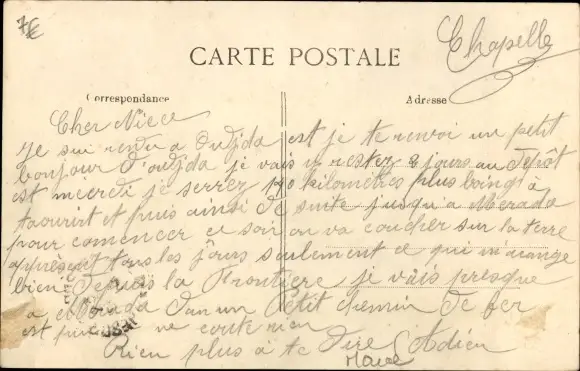 7€
Chapelle
CARTE POSTALE
Correspondance
Adresse
Cher Niece
Je sui rendu a Oudjda est je te renvoi un petit
bonjour d'oudjda je vais y restez 2 jours au Depôt
est mercdi je serrez kilomètres plus loing à
taourirt et puis ainsi de suite jusqu'a Merada
pour comencer ce soir on va coucher sur la terre
tous les jours seulement ce qui m'arrange
bien depuis la Frontiere je vais presque
a Merada dan un Petit chemin de fer
est puis ne coute rien
Rien plus à te dire Adieu